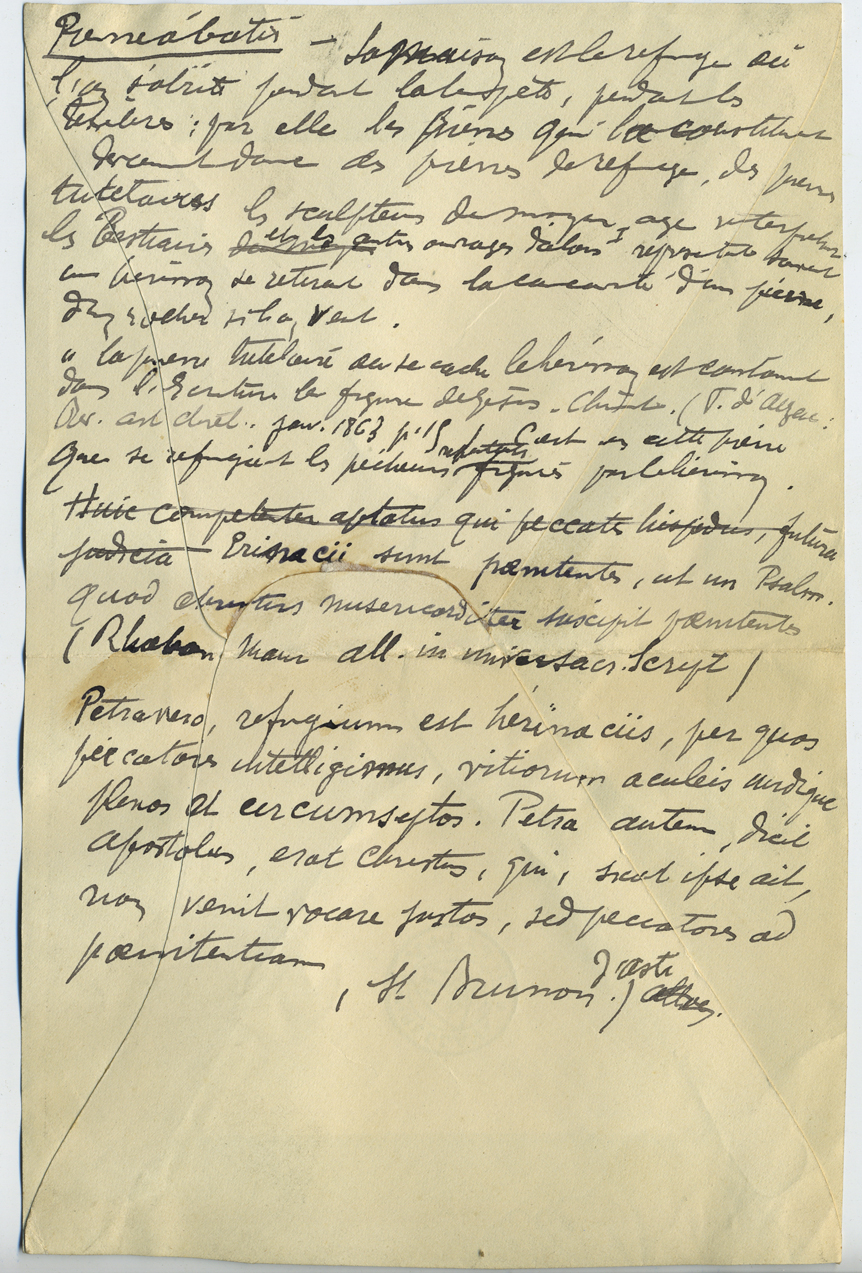 Pierre à batir — La maison est le refuge où
l'on s'abrite pendant la tempête, pendant les
ténèbres ; par elle les pierres qui la constituent
deviennent donc des pierres de refuge, des pierres
tutélaires les sculpteurs du moyen-age interprétant
les Bestiaires et les autres ouvrages d'alors représentent souvent
un hérisson se retirant dans la cavité d'une pierre,
d'un rocher si l'on veut.
" la pierre tutélaire où se cache le hérisson est constamment
dans l'Ecriture la figure de Jésus-Christ. (T. d'
Rev. art chrét. janv. 1863 p. 15) C'est en cette pierre
que se réfugient les pécheurs figurés par le hérisson.
Huic competenter aptatus qui peccatis hispidus, futura
judicia Erinacii sunt pœnitentes, ut in Psalm.
quod christus misericorditer suscipit pœnitentes
(Rhaban Maur all. in univers sacr. Script)
Petra vero, refugium est hérinaciis, per quos
peccatores intelligimus, vitiorum aculeis undique
plenos et circumseptos. Petra autem, dicit
apostolus, erat Christus, qui, sicut ipse ait,
non venit vocare justos, sed peccatores ad
pœnitentiam
(St Brunon d'Asti)